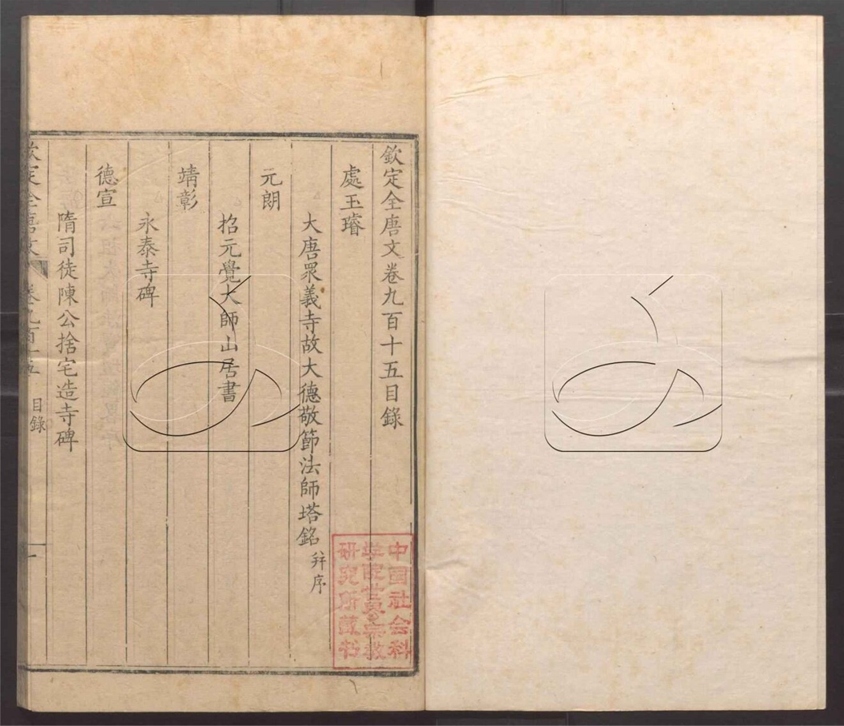 欽定全唐文卷九百十五目錄
處玉璿
大唐眾義寺故大德敬節法師塔銘并序
元朗
招元覺大師山居書
靖彰
永泰寺碑
德宣
隋司徒陳公捨宅造寺碑
欽定全唐文 卷九百十五 目錄 一
中国社会科
学院世界宗教
研究所藏书